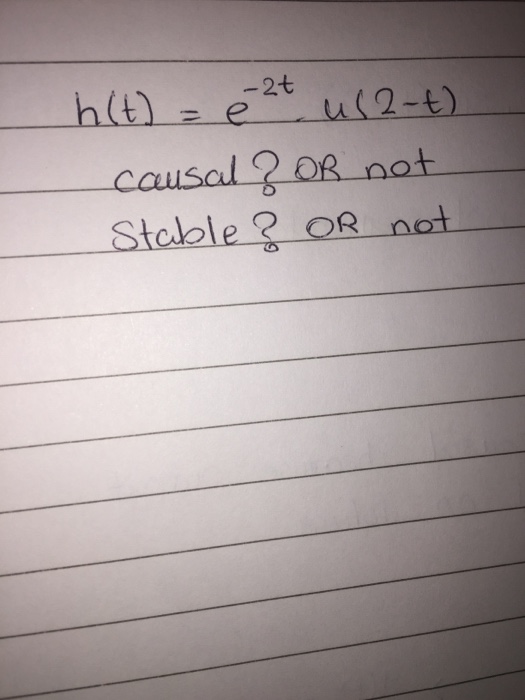 h(t) = e^{-2t} . u(2-t)
causal ? OR not
Stable ? OR not